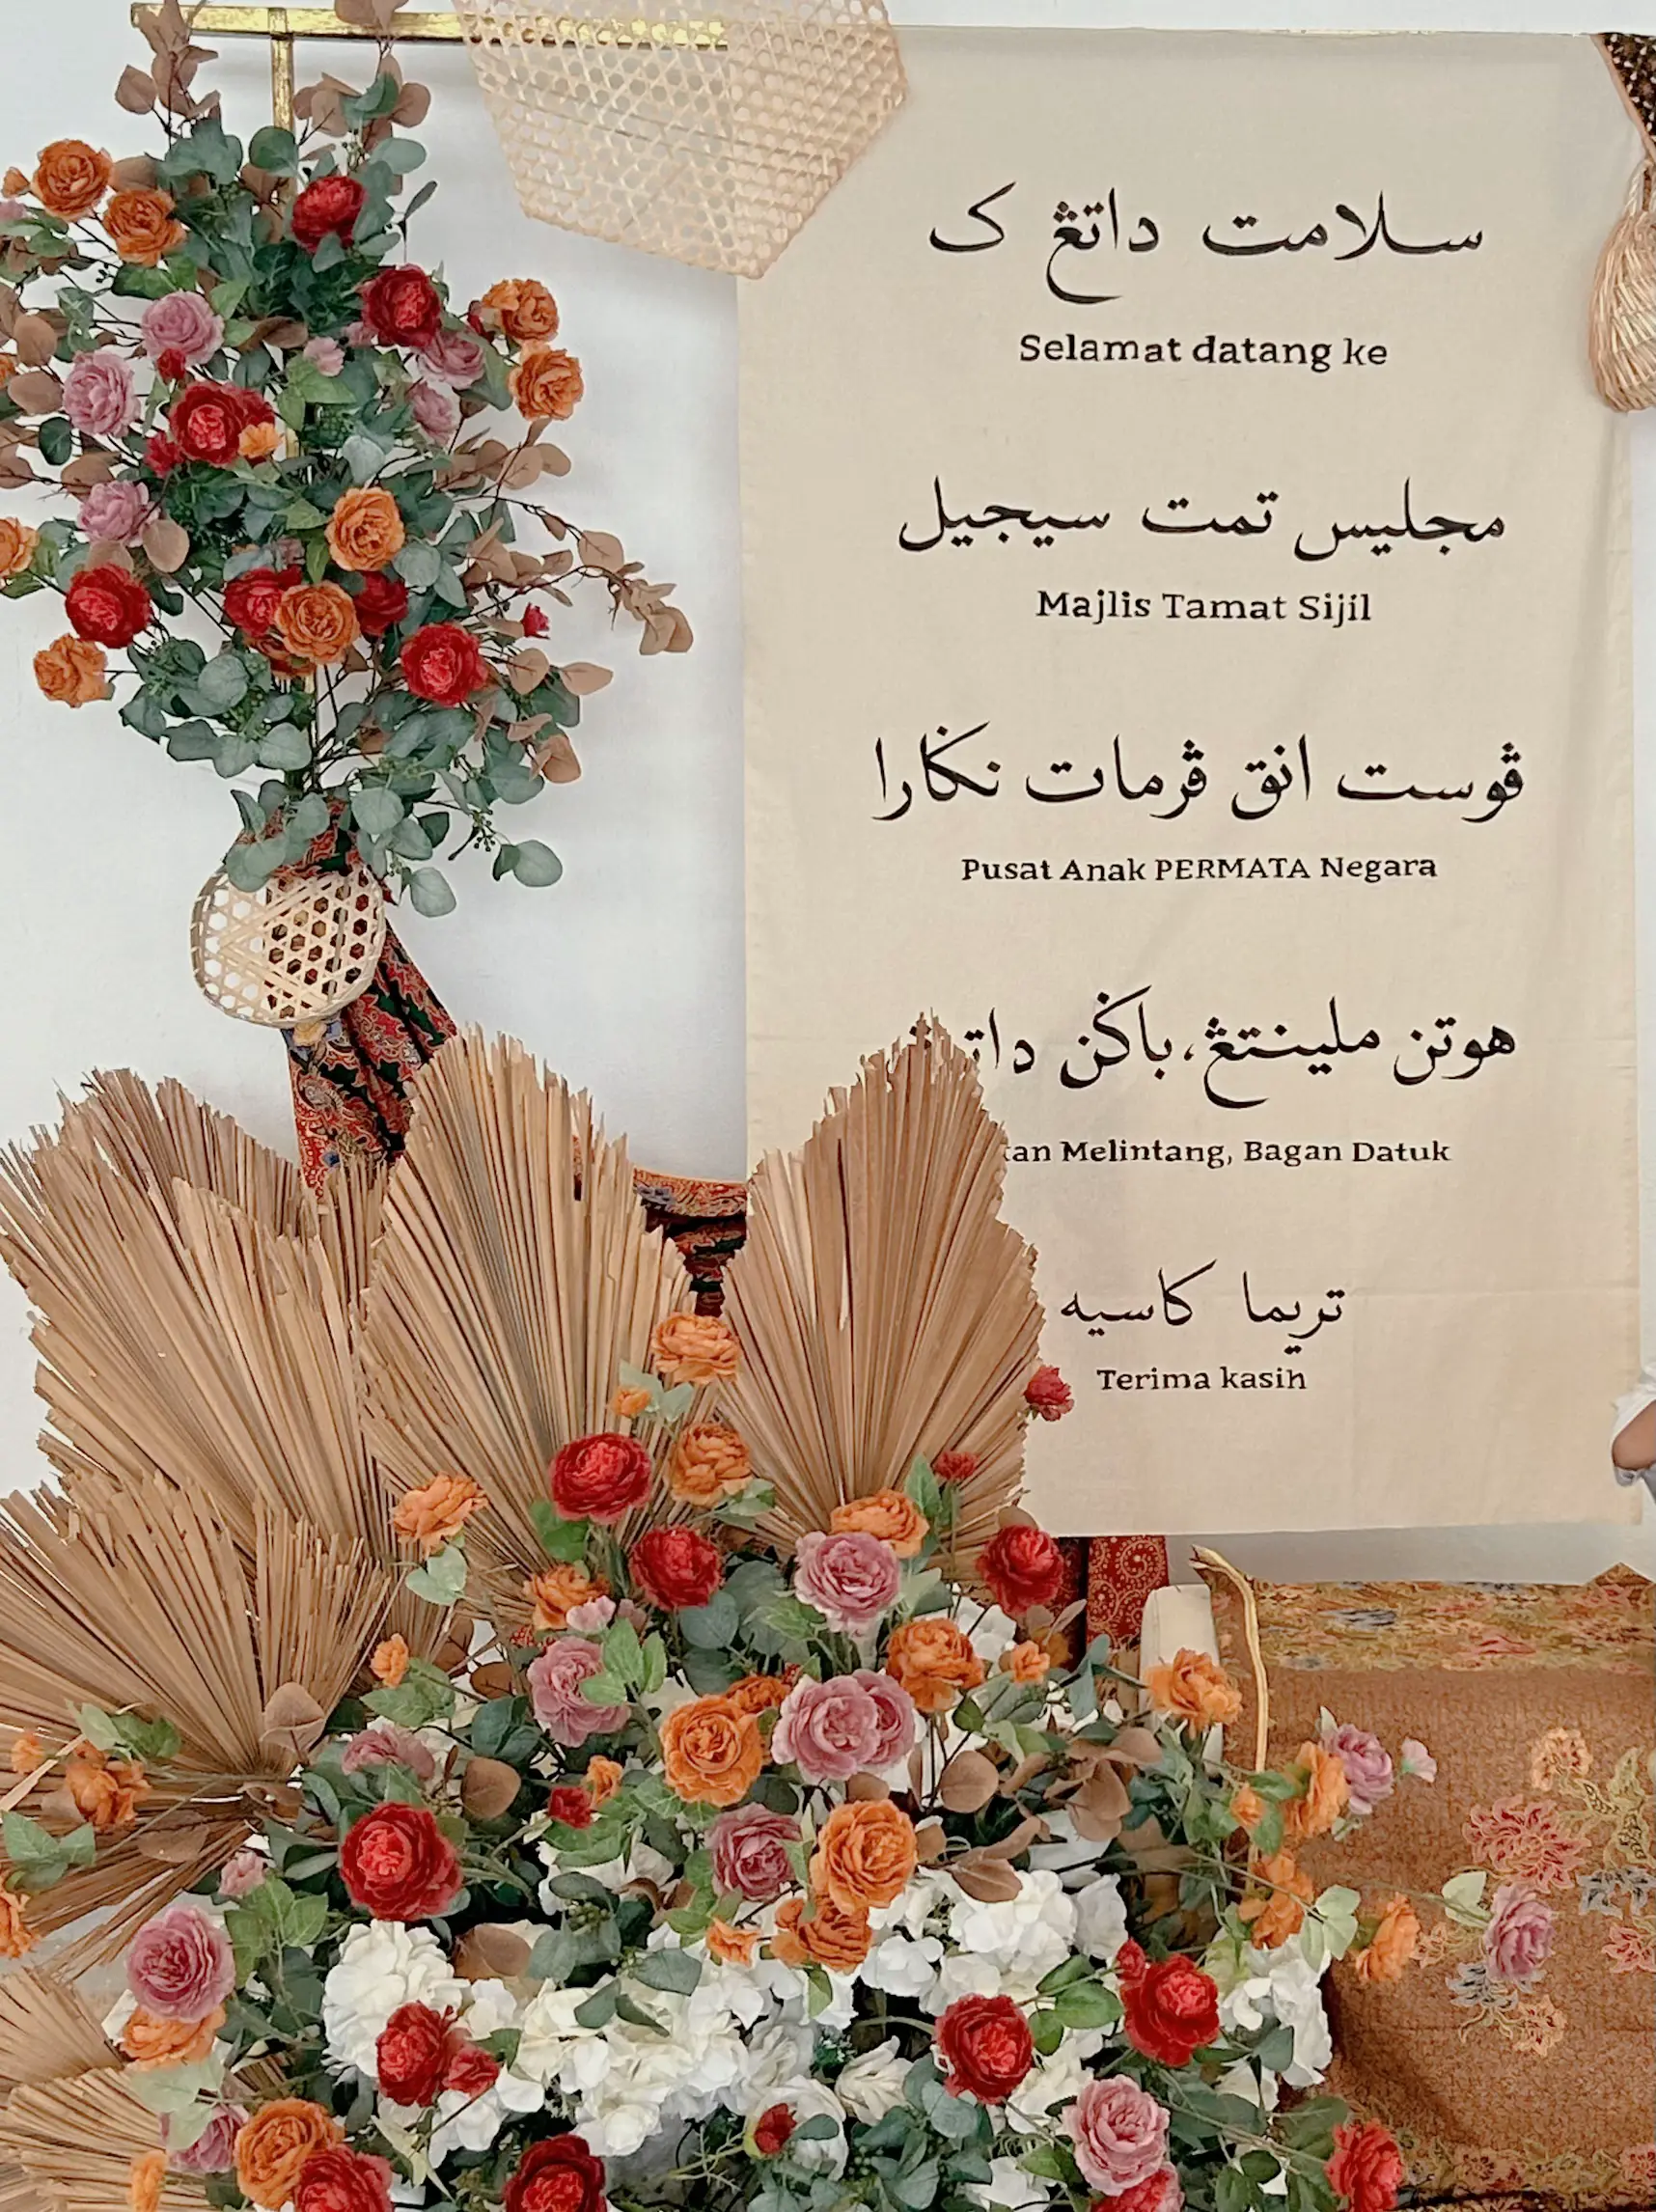 سلامت داتڠ ک
Selamat datang ke
مجليس تمت سيجيل
Majlis Tamat Sijil
ڤوست انق ڤرمات نݢارا
Pusat Anak PERMATA Negara
هوتن ملينتڠ، باݢن
Melintang, Bagan Datuk
تريما کاسيه
Terima kasih